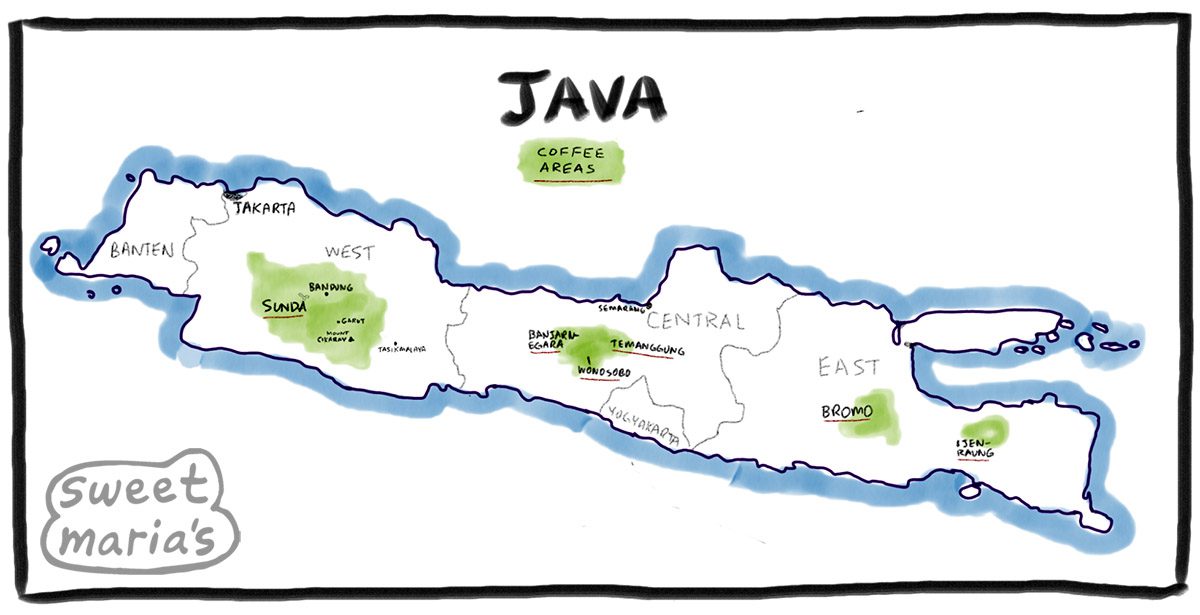 JAVA
COFFEE
AREAS
JAKARTA
BANTEN
WEST
BANDUNG
SUNDA
GARUT
MOUNT
CIKARAY
TASIKMALAYA
SEMARANG
CENTRAL
BANJARN-
EGARA
TEMANGGUNG
WONOSOBO
YOGYAKARTA
EAST
BROMO
IJEN-
RAUNG
sweet
maria's